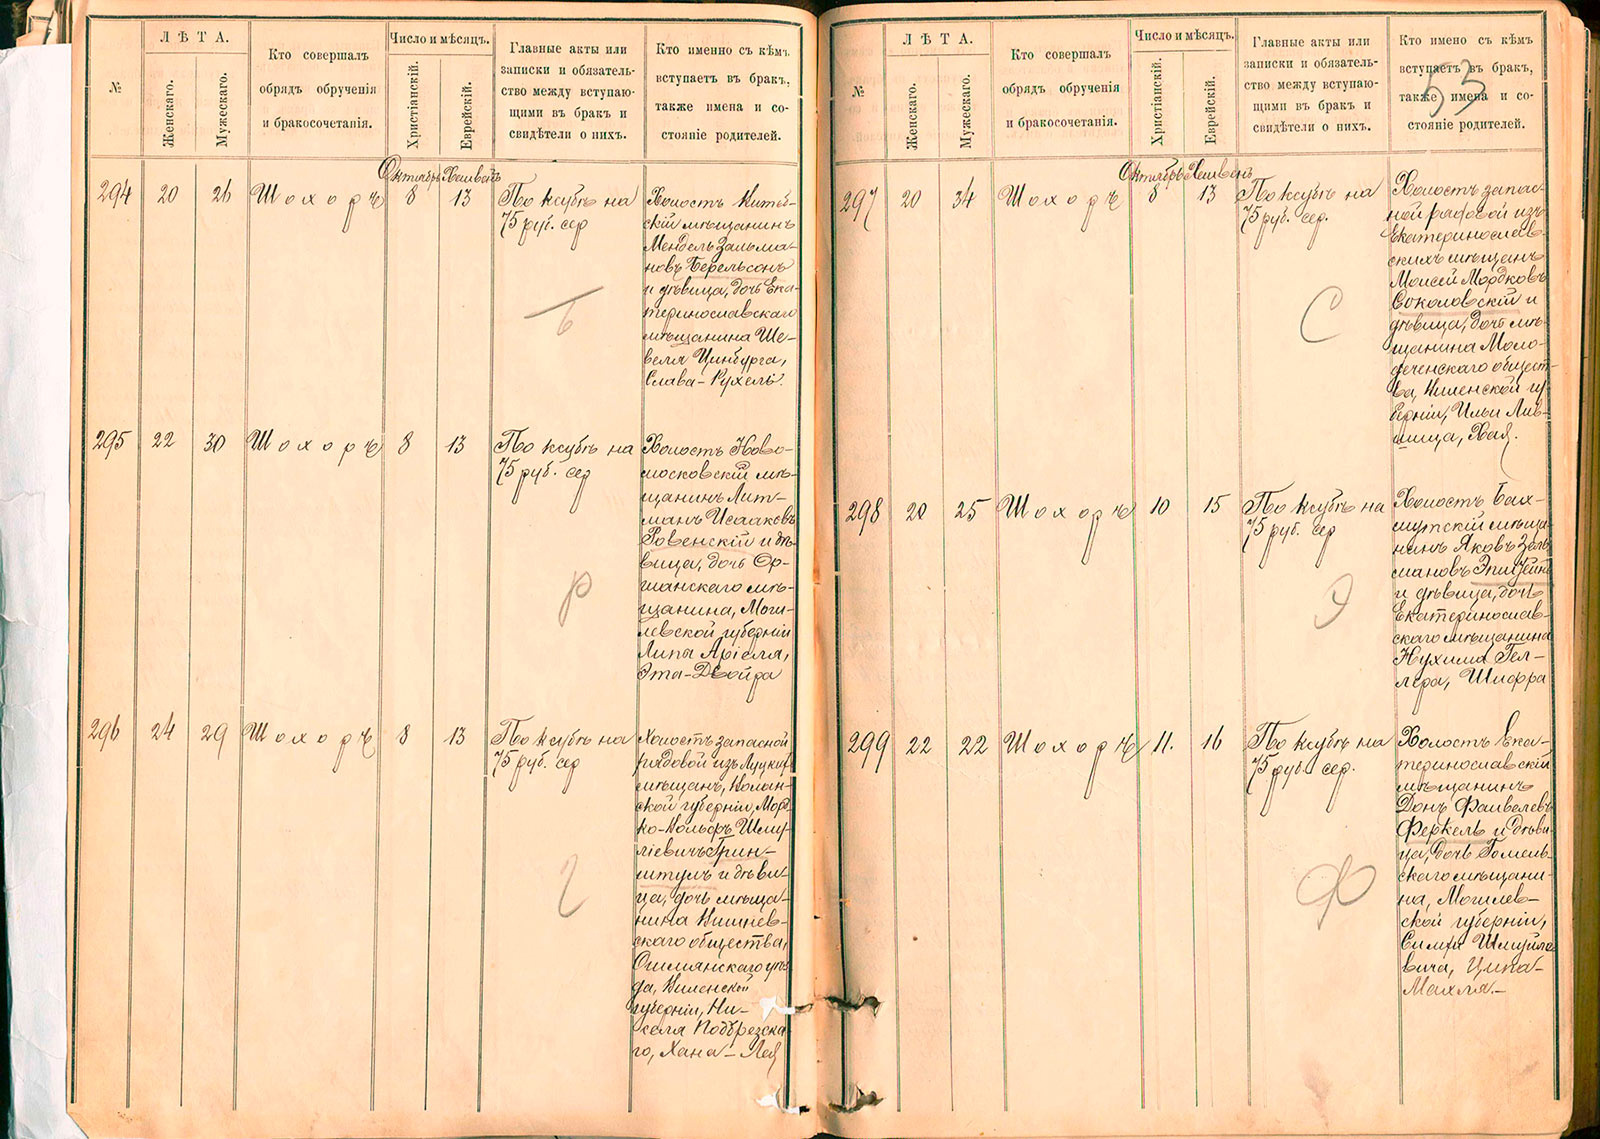 №
ЛѢТА.
Женскаго.
Мужескаго.
Кто совершалъ
обрядъ обрученія
и бракосочетанія.
Число и мѣсяцъ.
Христіанскій.
Еврейскій.
Главные акты или
записки и обязатель-
ство между вступаю-
щими въ бракъ и
свидѣтели о нихъ.
Кто именно съ кѣмъ
вступаетъ въ бракъ,
также имена и со-
стояніе родителей.
Октябрь Хешвенъ
294 20 26 Шохоръ 8 13
По ксубѣ на
75 руб. сер
Холостъ Витеб-
скій мѣщанинъ
Мендель Зальма-
новъ Берельсонъ
и дѣвица, дочь Ека-
теринославскаго
мѣщанина Ше-
веля Цинбурга,
Слава-Рухель.
Б
295 22 30 Шохоръ 8 13
По ксубѣ на
75 руб. сер
Холостъ Ново-
московскій мѣ-
щанинъ Лит-
манъ Исааковъ
Ровенскій и дѣ-
вица, дочь Ор-
шанскаго мѣ-
щанина, Моги-
левской губерніи
Липы Аріеля,
Эта-Двойра
Р
296 24 29 Шохоръ 8 13
По ксубѣ на
75 руб. сер
Холостъ запасной
рядовой изъ Луцкихъ
мѣщанъ, Волын-
ской губерніи, Морд-
ко-Вольфъ Шму-
ліевичъ Грин-
штулъ и дѣви-
ца, дочь мѣща-
нина Вишнев-
скаго общества,
Ошмянскаго уѣз-
да, Виленской
губерніи, Ни-
селя Подбрезска-
го, Хана-Лея
Г
№
ЛѢТА.
Женскаго.
Мужескаго.
Кто совершалъ
обрядъ обрученія
и бракосочетанія.
Число и мѣсяцъ.
Христіанскій.
Еврейскій.
Главные акты или
записки и обязатель-
ство между вступаю-
щими въ бракъ и
свидѣтели о нихъ.
Кто имено съ кѣмъ
вступаетъ въ бракъ,
также имена и со-
стояніе родителей.
53
Октябрь Хешвенъ
297 20 34 Шохоръ 8 13
По ксубѣ на
75 руб. сер.
Холостъ запас-
ной рядовой изъ
Екатеринослав-
скихъ мѣщанъ
Моисей Мордковъ
Соколовскій и
дѣвица, дочь мѣ-
щанина Моло-
деченскаго общест-
ва, Виленской гу-
берніи, Ильи Лив-
шица, Хая.
С
298 20 25 Шохоръ 10 15
По ксубѣ на
75 руб. сер
Холостъ Бах-
мутскій мѣща-
нинъ Яковъ Заль
мановъ Эпштейнъ
и дѣвица, дочь
Екатеринослав-
скаго мѣщанина
Нухима Гел-
лера, Шифра
Э
299 22 22 Шохоръ 11. 16
По ксубѣ на
75 руб. сер.
Холостъ Ека-
теринославскій
мѣщанинъ
Донъ Файвелевъ
Феркель и дѣви-
ца, дочь Гомель-
скаго мѣщани-
на, Могилев-
ской губерніи,
Симхи Шмуйло-
вича, Ципа-
Махля.-
Ф